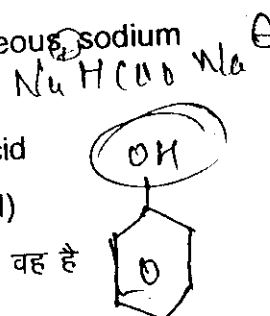 eous sodium
Na HCOO Na
cid
OH
l)
वह है